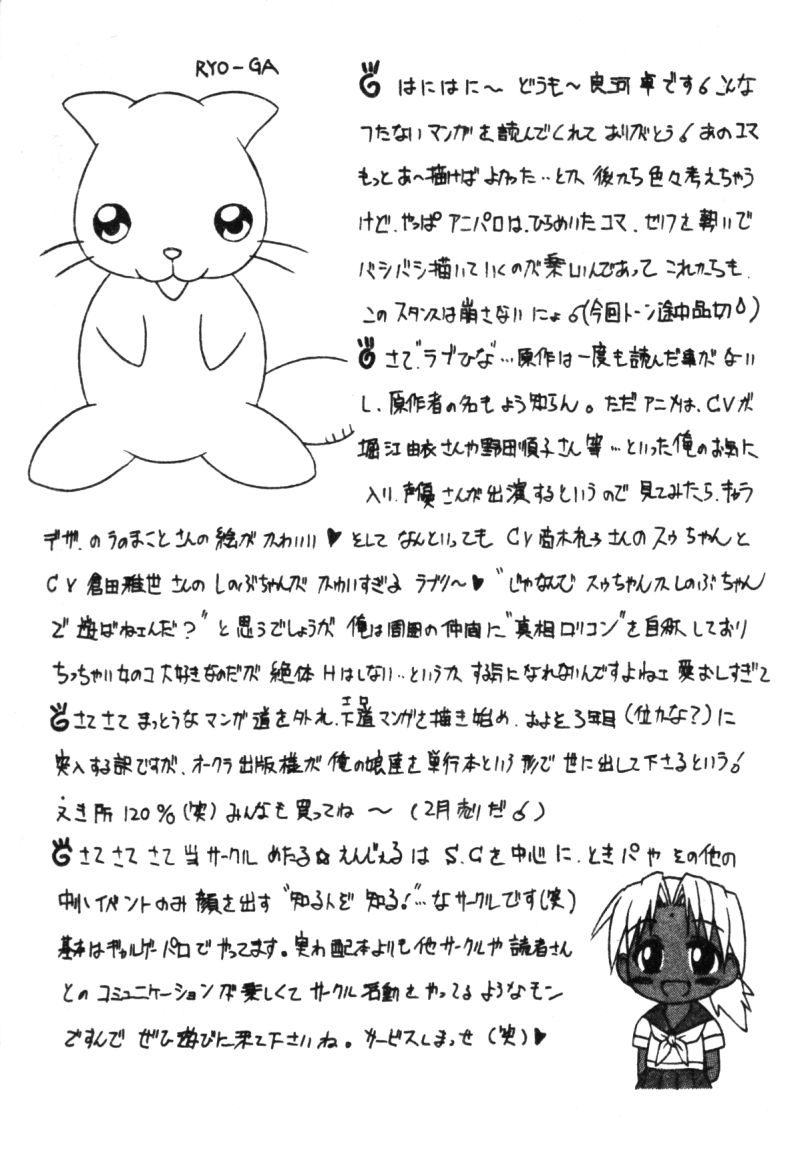 RYO-GA
はにはに〜 どうも〜 良河卓です こんな
つたないマンガを読んでくれて ありがとう あのコマ
もっとあ〜描けば よかった…とか 後から色々考えちゃう
けど、やっぱ アニパロは、ひらめいたコマ、セリフを勢いで
バシバシ描いていくのが楽しいんであって これからも、
この スタンスは崩さないにょ (今回トーン途中品切)
さて、"ラブひな"…原作は一度も読んだ事がない
し、原作者の名もよう知らん。ただアニメは、CVが
堀江由衣さんや野田順子さん等…といった俺のお気に
入り、声優さんが出演するというので 見てみたら、キャラ
デザ、のうのまことさんの絵がかわいい♥ そして なんといっても CV高木礼子さんのスゥちゃんと
CV 倉田雅世さんのしのぶちゃんが かわいすぎる ラブリ〜♥ "じゃなんで スゥちゃんかしのぶちゃん
で 遊ばねェんだ?"と思うでしょうが 俺は周囲の仲間に"真相ロリコン"を自称しており
ちっちゃい女のコ大好きなのだが 絶体Hはしない…というか する気になれないんですよねェ 愛おしすぎて
さてさて まっとうなマンガ道を外れ、下道マンガを描き始め、およそ3年目(位かな?)に
エロ
突入する訳ですが、オークラ出版様が 俺の娘達を単行本という形で 世に出して下さるという
えき所 120%(笑) みんなも買ってね 〜 (2月売りだ)
さてさて さて 当サークル めたる☆えんじぇる は S.Cを中心に、ときパや その他の
中小イベントのみ 顔を出す "知る人ぞ 知る!"…なサークルです(笑)
基本はギャルゲーパロで やってます。実わ 配本よりも他サークルや読者さん
とのコミュニケーションが楽しくて サークル活動をやってるようなモン
ですんで ぜひ遊びに来て下さいね。サービスしまっせ(笑)♥